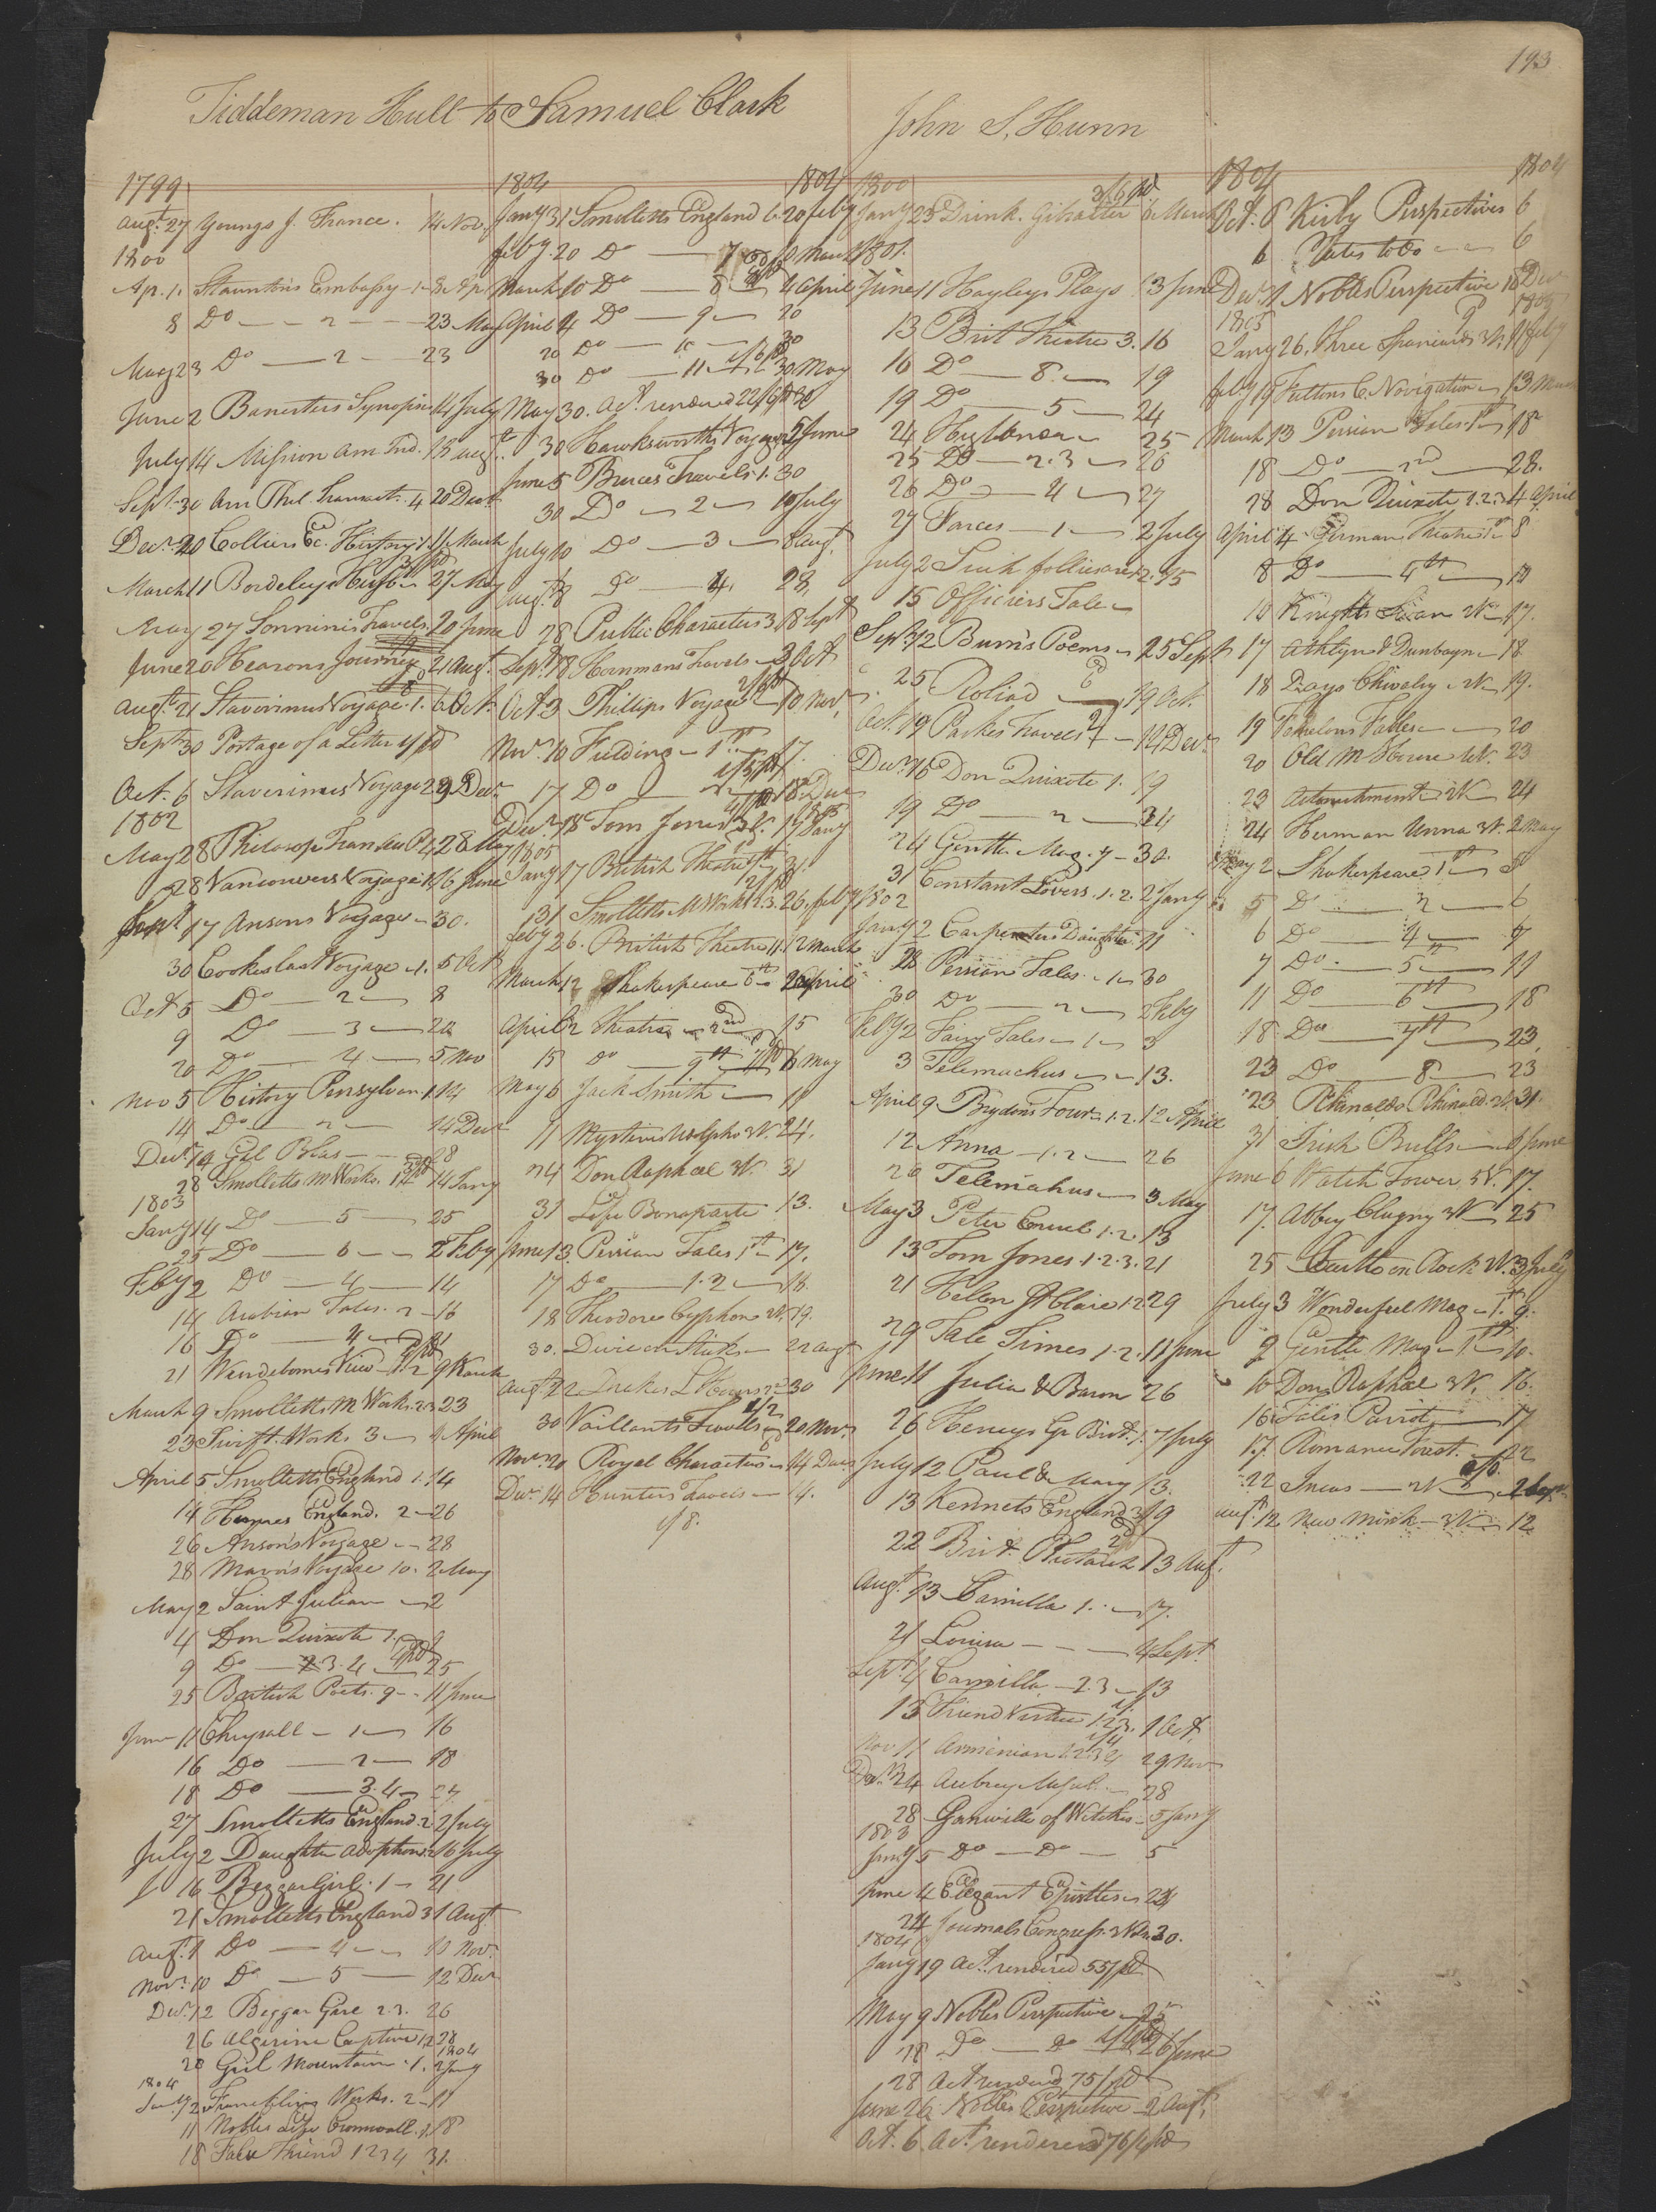 193
Tiddeman Hull to Samuel Clark
1799
Augt. 27 Youngs J. France. 14 Nov.
1800
Ap. 1. Stauntons Embassy - 1 - 8 Ap
8 Do - - 2 - - 23 May
May 23 Do - 2 - 23
June 2 Banesters Synopsis 14 July
July 14 Mission Am Ind. 15 Augt.
Sept. 30 Am Phil Transact. 4 20 Decr
Decr. 20 Colliers Ec. History 1. 11 March
March 11 Bordeleys Husb. 27 May
May 27 Sonninis Travels. 20 June
June 20 Hearons Journey 21 Augt.
Augt. 21 Stavorinus Voyage 1. 6 Oct.
Sept. 30 Postage of a Letter
Oct. 6 Stavorinus Voyage 2 Decr
1802
May 28 Philosop. Transac 4 28 May
28 Vancouvers Voyage 16 June
17 Ansons Voyage - 30.
30 Cookes last Voyage - 1. 5 Oct
Oct 5 Do - 2 - 8
9 Do - 3 - 20
20 Do - 4 - 5 Nov
Nov 5 History Pensylvan. 1 14
14 Do - 2 - 14 Decr
Decr. 14 Gil Blas - 28
28 Smolletts M Works. 1 14 Jany
1803
Jany 14 Do - 5 - 25
25 Do - 6 - - 2 Feby
Feby 2 Do - 4 - 14
14 Arabian Tales. 2 - 16
16 Do - 4 - 21
21 Wendebornes View 1.2 9 March
March 9 Smolletts M Works. 2.3 23
23 Swifts Works 3 - April
April 5 Smolletts England 1. 14
14 Humes England. 2 - 26
26 Anson's Voyage - - 28
28 Mavor's Voyage 10. 2 May
May 2 Saint Julian - 2
4 Don Quixote 1. 9
9 Do - 2.3.4 25
25 British Poets. 9 - - 11 June
June 11 Chrysall - 1 - 16
16 Do - 2 - 18
18 Do - 3.4 - 27
27 Smolletts England 2 2 July
July 2 Daughter Adoption 2 16 July
16 Beggar Girl. 1 - 21
21 Smolletts England 3 1 Augt
Augt. 1 Do - 4 - - 10 Nov.
Novr. 10 Do - 5 - 12 Decr
Decr. 12 Beggar Gare 2.3. 26
26 Algerine Captive 1.2 28
1804
28 Girl Mountain. 1. 2 Jany
1804
Jany 2 Franklins Works. 2 - 11
11 Nobles Life Cromwell. 1. 18
18 False Friend 1 2 3 4 31.
1804 1804
Jany 31 Smolletts England 6. 20 Feby
Feby. 20 Do - 7 10 March
March 10 Do - 8 4 April
April 4 Do - 9 - 20
20 Do - 10 - 30
30 Do - 11 30 May
May 30. Act. rendered 22/6
30 Hawksworths Voyage 5 June
June 5 Bruces Travels. 1. 30
30 Do - 2 - 10 July
July 10 Do - 3 - 8 Augt.
Augt. 8 Do - 4. 28,
28 Public Characters 3. 18 Sept
Sept. 18 Hornmans Travels - 3 Oct
Oct 3 Phillips Voyage 10 Nov.
Novr. 10 Fielding - 1st - 17.
17 Do - 18 Decr
Decr. 18 Tom Jones 3 V. 17 Jany
1805
Jany 17 British Theatre 31.
31 Smolletts M Works 2.3. 26. Feby
Feby 26. British Theatre 11. 12 March
March 12 Shakespeare 6th 2 April
April 2 Theatre - 2nd 15
15 Do - 9th 6 May
May 6 Jack Smith - 11
11 Mysteries Udolpho 3 V. 24.
24 Don Raphael 3 V. 31
31 Life Bonaparte 13.
June 13. Persian Tales 1st - 17.
17 Do - 1.2 - 18.
18 Theodore Cyphon 2 V. 19.
30. Devil on Sticks - 22 Augt
Augt. 22 Drakes L Hours 2d 30
30 Vaillants Travells 20 Nov.
Novr. 20 Royal Characters - 14 Decr
Decr. 14 Hunters Travels - 14.
John S. Hunn
1800
Jany 25 Drink. Gibralter 6 March
1801.
June 11 Hayleys Plays 13 June
13 Brit Theatre 3. 16
16 Do - 8. - 19
19 Do - 5 - 24
24 Hugh - 25
25 Do - 2.3 - 26
26 Do - 4 - 27
27 Farces - 1 - 2 July
July 2 Such follies are 1.2. 15
15 Officers Tale -
Sept. 12 Burn's Poems - 25 Sept
25 Roliad 19 Oct.
Oct. 19 Parkes Travels - 14 Decr
Decr. 15 Don Quixote 1. 19
19 Do - 2 - 24
24 Gentle. Mag. 7 - 30.
31 Constant Lovers. 1. 2. 2 Jany
1802
Jany 2 Carpenters Daughter 11
28 Persian Tales - 1 - 30
30 Do - 2 - 2 Feby
Feby 2 Fairy Tales - 1 - 3
3 Telemachus - - 13.
April 9 Brydons Tour. 1.2. 12 April
12 Anna - 1. 2 - 26
26 Telemahus - 3 May
May 3 Peter Cornel 1.2. 13
13 Tom Jones 1.2.3. 21
21 Hellen St Claire 1.2 29
29 Tale Times 1.2. 11 June
June 11 Julia & Baron 26
26 Henrys Gr Brit. 1. 7 July
July 12 Paul & Mary 13.
13 Kennets England 3 19
22 Brit. Plutarch 13 Augt.
Augt. 13 Camilla 1. - 17.
21 Louisa - - - 4 Sept.
Sept. 4 Camilla - 2.3 - 13
13 Friend Virtue 1.2.3. 1 Oct.
Nov 11 Armenian 1 2 3 4 29 Nov
Decr. 24 Aubrey 28
28 Ganville of Witches - 5 Jany
1803
Jany 5 Do - Do - 5
June 4 Elegant Epistles - 24
24 Journals Congress. 30.
1804
Jany 19 Act. rendered 55/
May 9 Nobles Perspective - 25
28 Do - Do 26 June
28 Act rendered 75/
June 26 Nobles Perspective - 2 Augt.
Oct. 6 Act. rendered 76/
1804 1804
Oct. 6 Kirby Perspectives 6
6 Plates to Do - - 6
Decr. 1 Nobles Perspective 18 Decr
1805 1805
Jany 26. Three Spaniards 2 V. 11 Feby
Feby 19 Fultons C. Navigation - 13 March
March 13 Persian Tales. 1st 18
18 Do - 2nd - 28.
28 Don Quixote 1.2.3 4 April
April 4 German Theatre 1st 8
8 Do - 4th - 10
10 Knights Swan 17.
17 Athlyn & Dunbayn - 18
18 Days Chivalry 19.
19 Fenelons Fables - - 20
20 Old M House 4 V. 23
23 24
24 Herman Unna 3 V. 2 May
May 2 Shakespeare 1st 5
5 Do - 2 - 6
6 Do - 4 - 7
7 Do - 5th - 11
11 Do - 6th - 18
18 Do - 7th - 23,
23 Do - 8 - 23
23 Rhinaldo Rhinald. 31.
31 Irish Bulls - 6 June
June 6 Watch Tower, 5 V. 17.
17. Abby Clugny 3 V 25
25 Castle on Rock 3 July
July 3 Wonderful Mag - 1st. 9.
9 Gentle Mag - 1st - 10.
10 Don Raphael 3 V. 16.
16 Tales Parrot - 17
17. Romance Forest. - 22
22 Incas - 2 V
Augt. 12 12